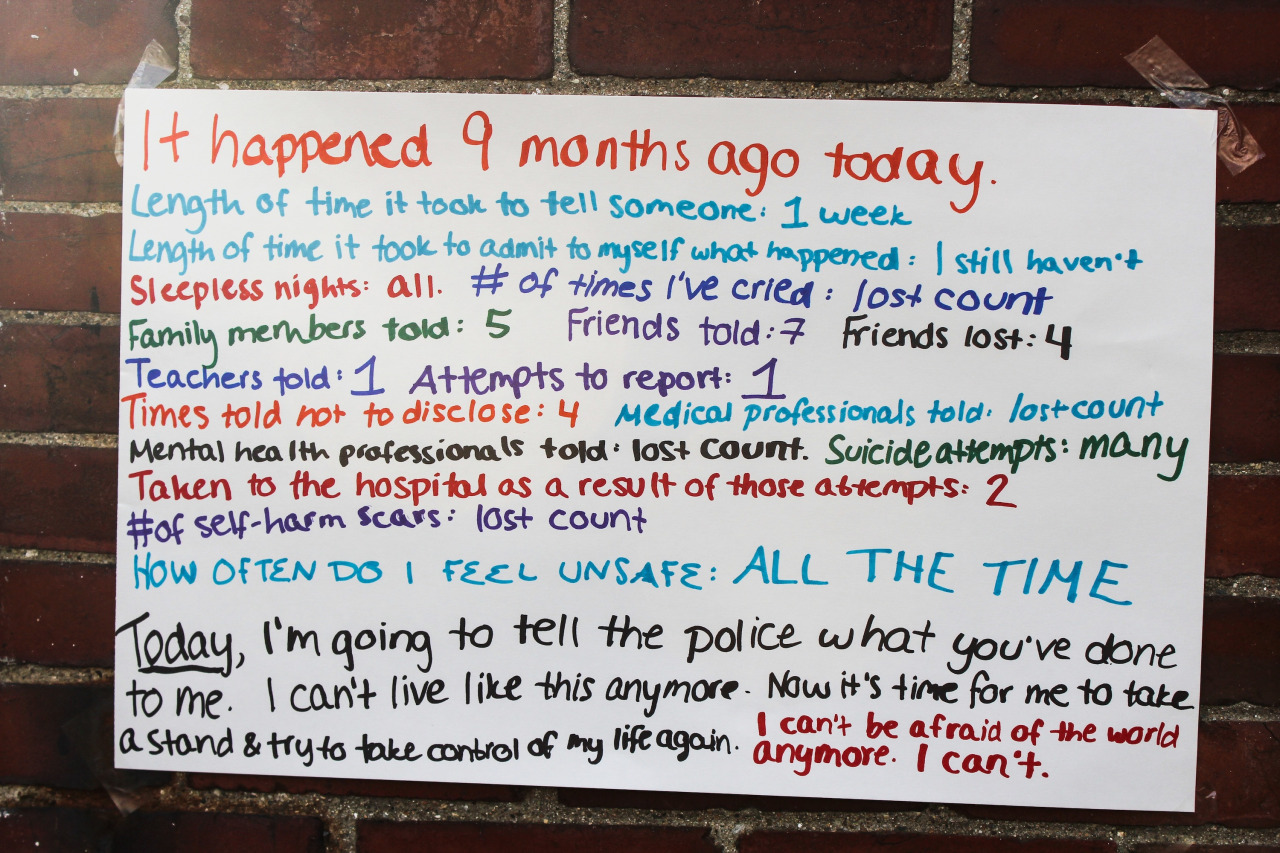 It happened 9 months ago today.
Length of time it took to tell someone: 1 week
Length of time it took to admit to myself what happened: I still haven't
Sleepless nights: all. # of times I've cried: lost count
Family members told: 5 Friends told: 7 Friends lost: 4
Teachers told: 1 Attempts to report: 1
Times told not to disclose: 4 Medical professionals told: lost count
Mental health professionals told: lost count. Suicide attempts: many
Taken to the hospital as a result of those attempts: 2
# of self-harm scars: lost count
HOW OFTEN DO I FEEL UNSAFE: ALL THE TIME
Today, I'm going to tell the police what you've done
to me. I can't live like this anymore. Now it's time for me to take
a stand & try to take control of my life again. I can't be afraid of the world
anymore. I can't.